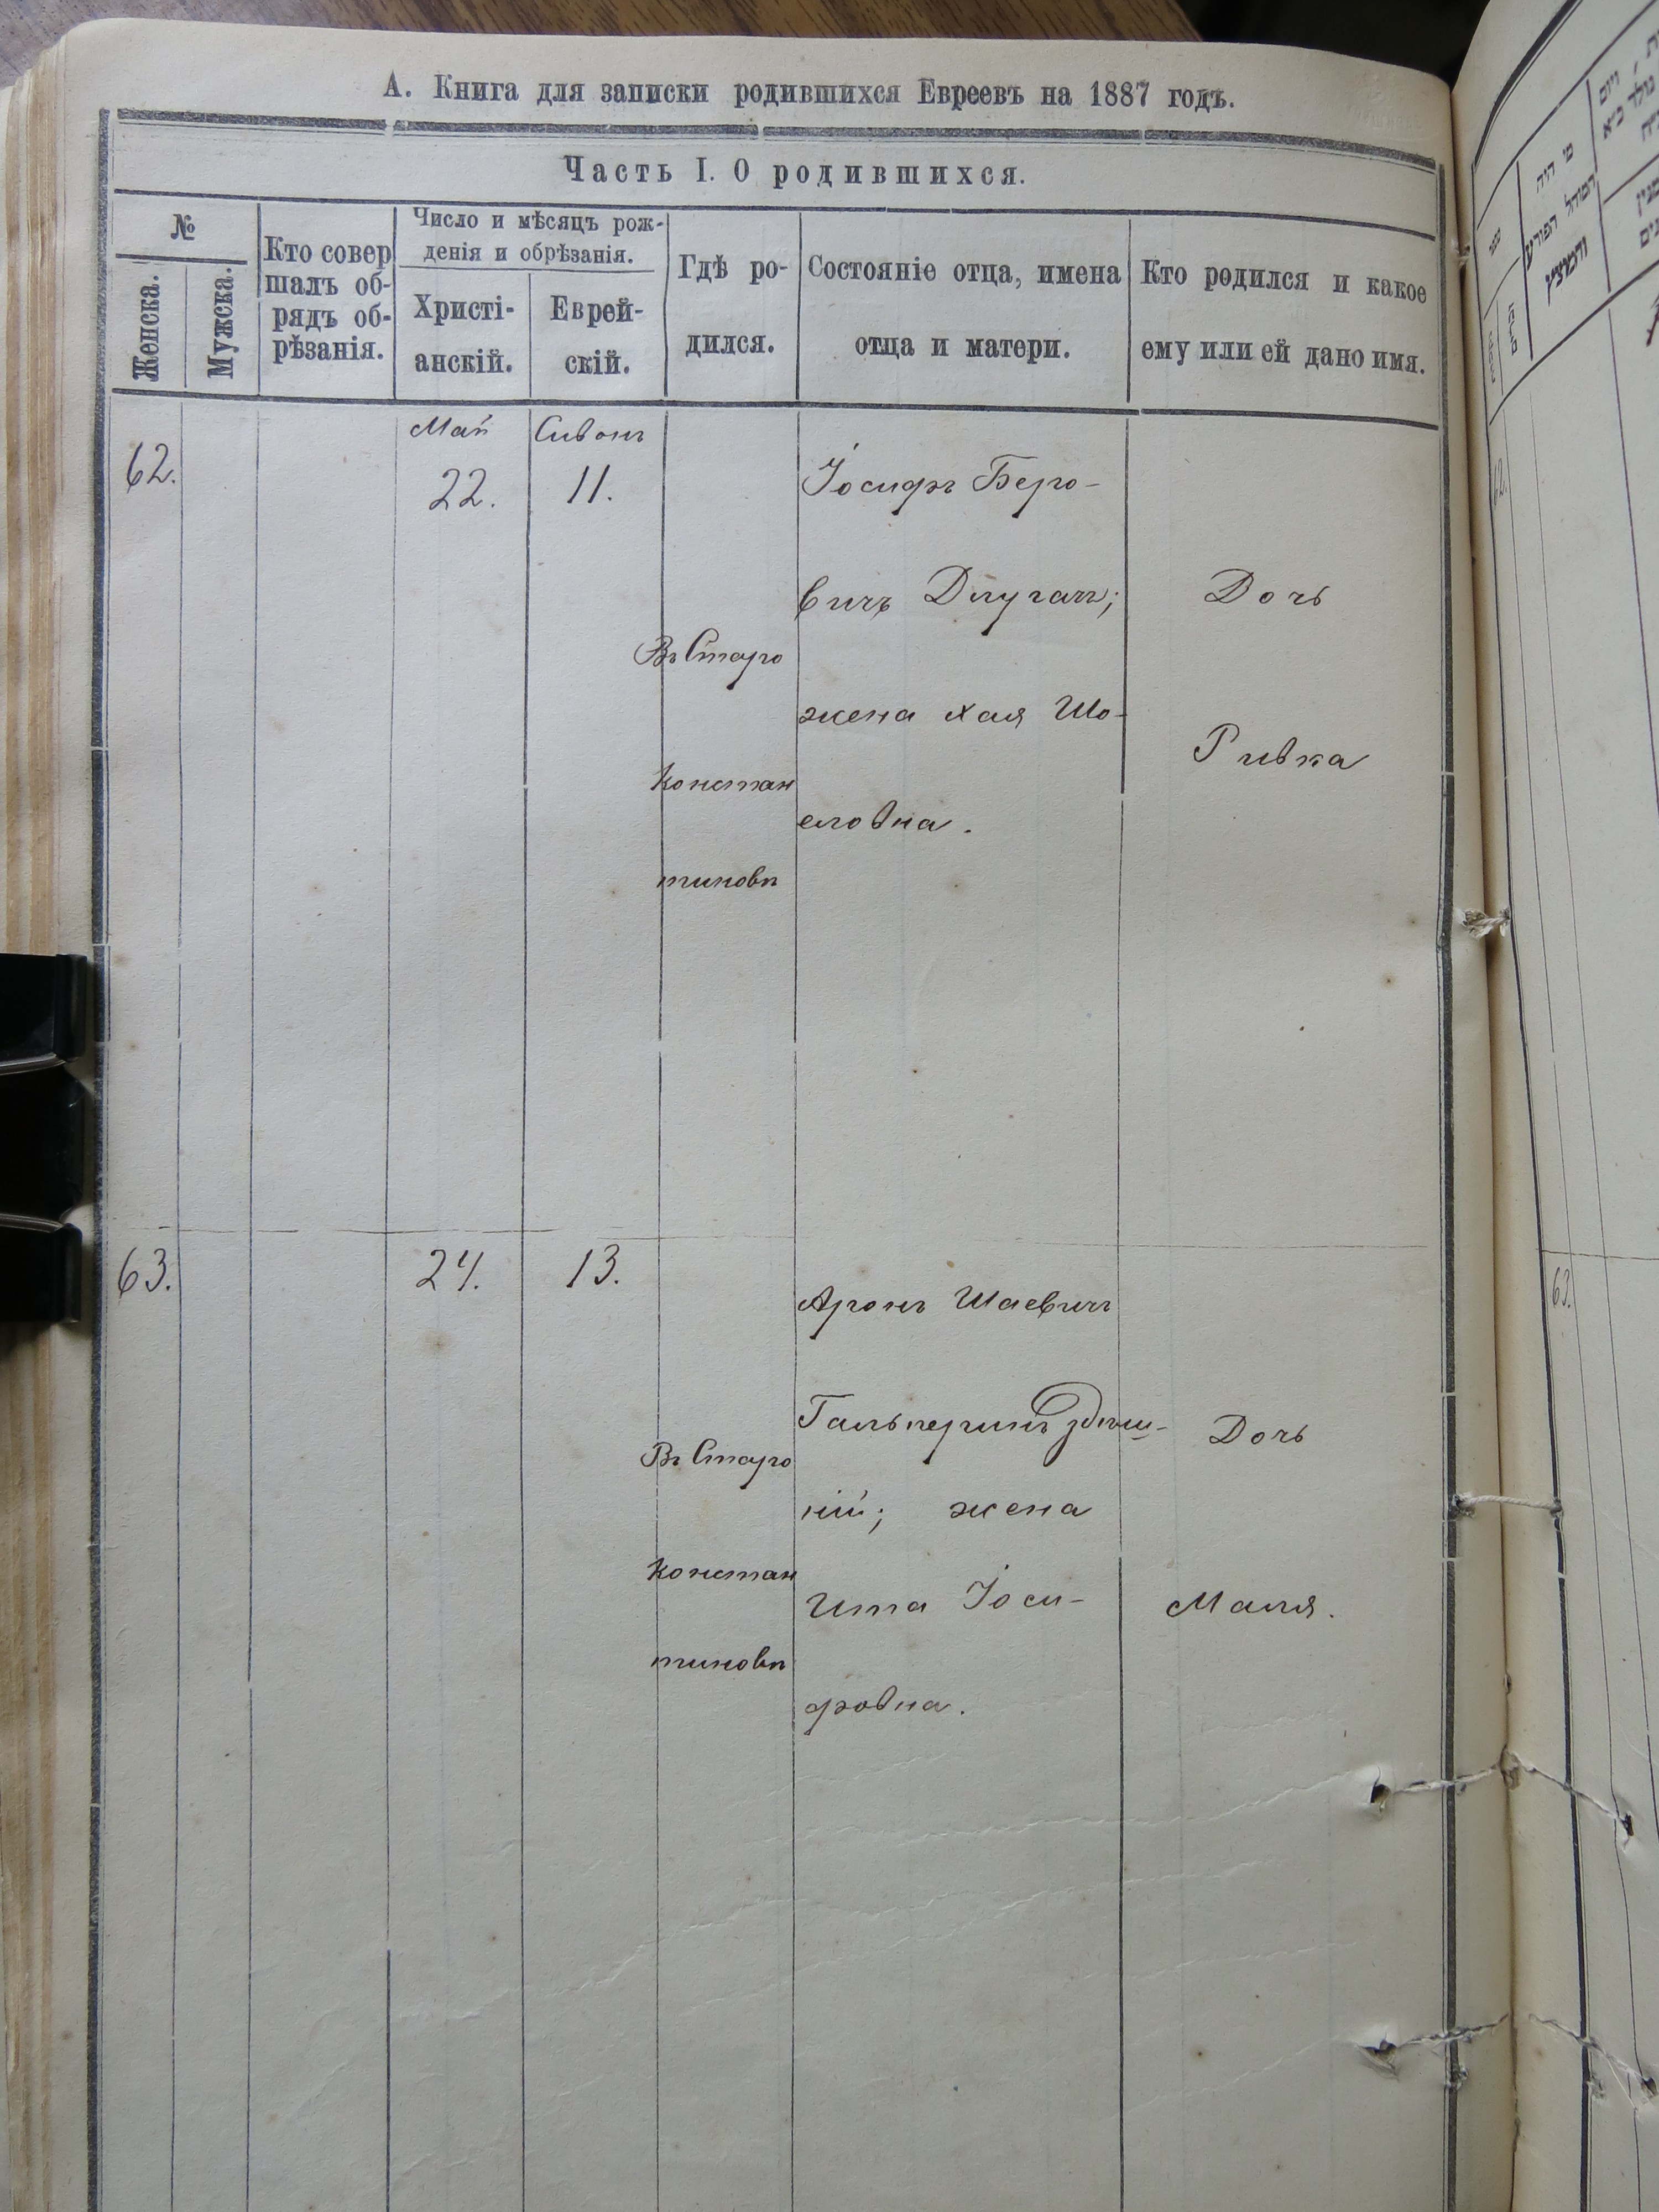 А. Книга для записки родившихся Евреевъ на 1887 годъ.
Часть I. О родившихся.
№
Женска.
Мужска.
Кто совер
шалъ об-
рядъ об-
рѣзанія.
Число и мѣсяцъ рож-
денія и обрѣзанія.
Христі-
анскій.
Еврей-
скій.
Гдѣ ро-
дился.
Состояніе отца, имена
отца и матери.
Кто родился и какое
ему или ей дано имя.
62.
Май
22.
Сивонъ
11.
Въ Старо
констан
тиновѣ
Іосифъ Беро-
вичъ Длугач;
жена Хая Шо-
еловна.
Дочь
Ривка
63.
24.
13.
Въ Старо
констан
тиновѣ
Аронъ Шаевичъ
Гальперинъ здѣш-
ній; жена
Ита Іоси-
фовна.
Дочь
Маля.
62.
63.